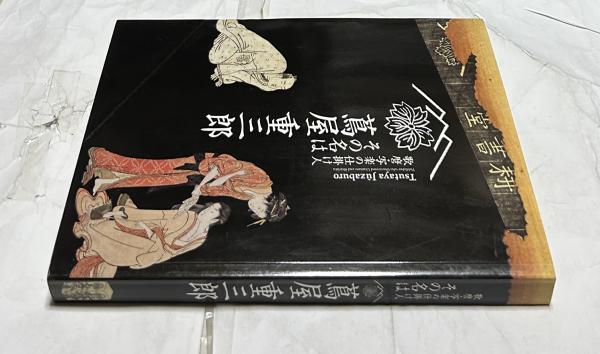 耕書堂
歌麿・写楽の仕掛け人
その名は
蔦屋重三郎
Tsutaya Jūzaburo
Publisher who discovered Utamaro and Sharaku
歌麿・写楽の仕掛け人
その名は
蔦屋重三郎